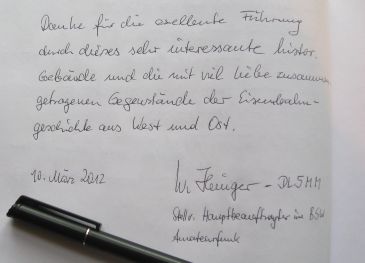 Danke für die exellente Führung
durch dieses sehr interessante histor.
Gebäude und die mit viel Liebe zusammen
getragenen Gegenstände der Eisenbahn-
geschichte aus West und Ost.
10. März 2012
- DL5MM
Stellv. Hauptbeauftragter im BSW
Amateurfunk